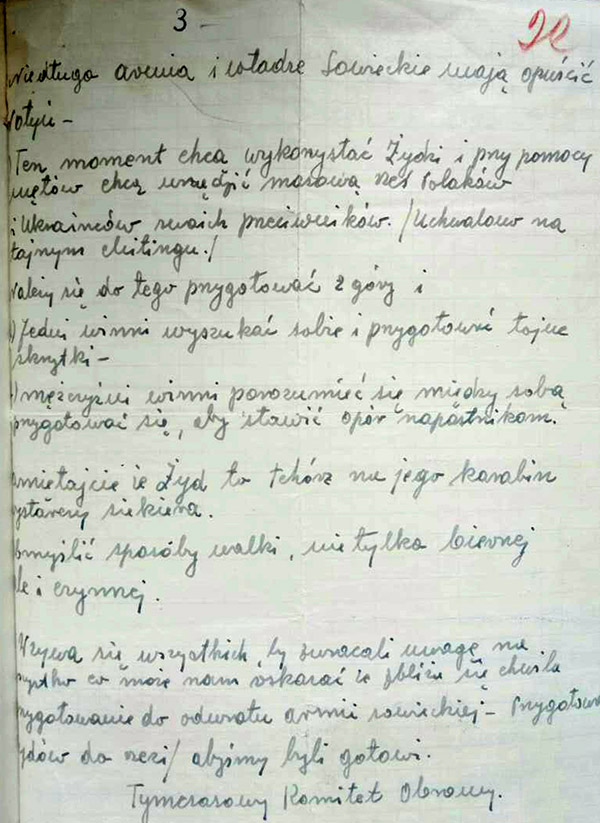 3 -
22
Niedługo armia i władze Sowieckie mają opuścić
ołyń -
Ten moment chcą wykorzystać Żydzi i przy pomocy
mętów chcą urządzić masową rzeź Polaków
i Ukraińców swoich przeciwników. /Uchwalono na
tajnym mitingu./
ależy się do tego przygotować z góry i
Jedni winni wyszukać sobie i przygotować tajne
skrytki -
mężczyźni winni porozumieć się między sobą
przygotować się, aby stawić opór napastnikom.
amiętajcie że Żyd to tchórz na jego karabin
ystarczy siekiera.
bmyślić sposoby walki, nie tylko biernej
le i czynnej.
Wzywa się wszystkich, by zwracali uwagę na
zystko co może nam wskazać że zbliża się chwila
zygotowanie do odwrotu armii sowieckiej - Przygotowa
ydów do rzezi/ abyśmy byli gotowi.
Tymczasowy Komitet Obrony.